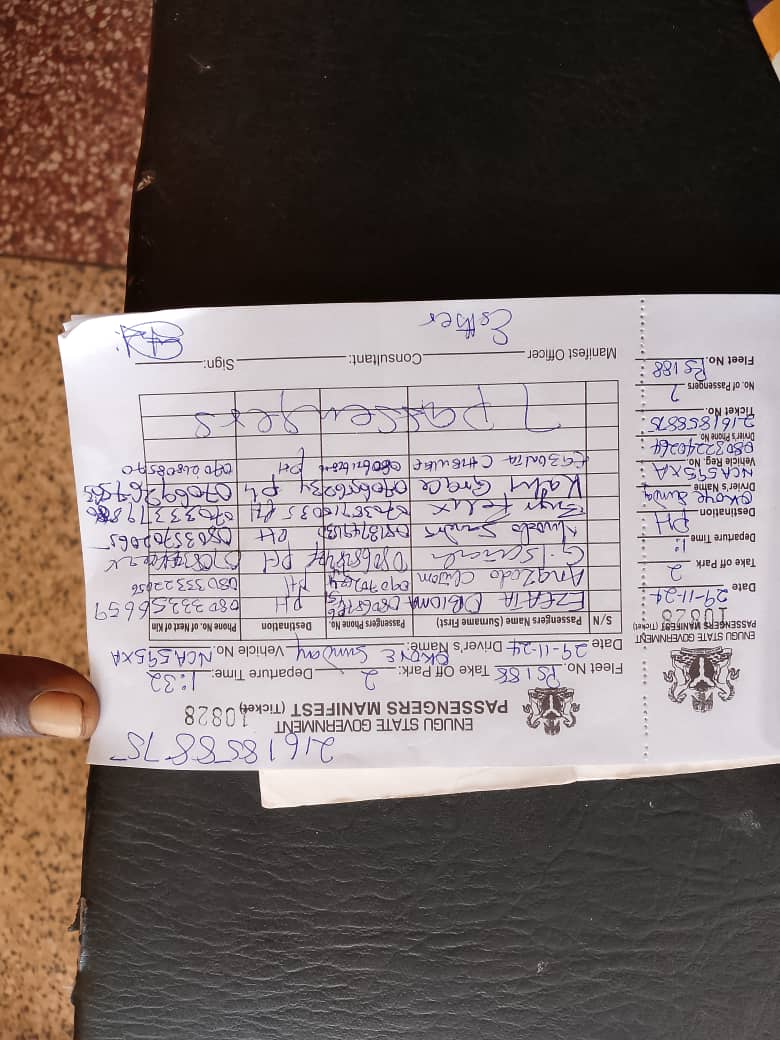 2161858875
ENUGU STATE GOVERNMENT
PASSENGERS MANIFEST (Ticket) 10828
Fleet No. Ps188 Take Off Park: 2 Departure Time: 1:32
Date 29-11-24 Driver's Name: OKOYE Sunday Vehicle No. NCA595XA
S/N Passengers Name (Surname First) Passengers Phone No. Destination Phone No. of Next of Kin
EZEATA OBIOMA PH 08033256659
Anazodo 08033322056
PH
Nwodo Sandra PH 08033202065
Engr Felix PH
Kalu Grace 09065656234 PH 07069276985
PH 09020808590
7 passengers
Manifest Officer Consultant: Sign:
Esther
ENUGU STATE GOVERNMENT
PASSENGERS MANIFEST (Ticket)
10828
Date 29-11-24
Take off Park 2
Departure Time 1:
Destination PH
Drivier's Name Okoye Sunday
Vehicle Reg. No. NCA595XA
Drivier's Phone No 08032240264
Ticket No. 2161858875
No. of Passengers 7
Fleet No. Ps188